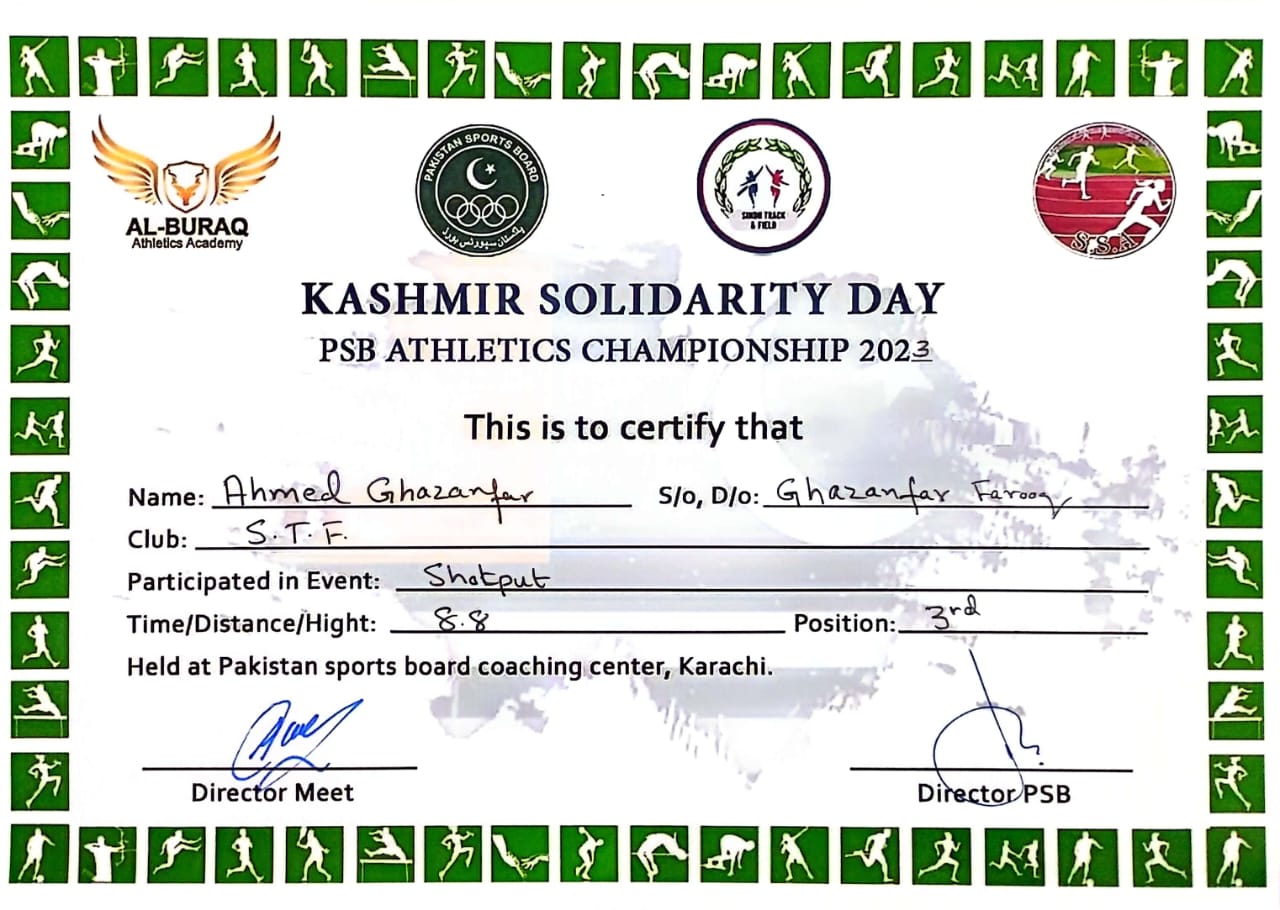 AL-BURAQ
Athletics Academy
PAKISTAN SPORTS BOARD
پاکستان سپورٹس بورڈ
SINDH TRACK
& FIELD
S.S.A
KASHMIR SOLIDARITY DAY
PSB ATHLETICS CHAMPIONSHIP 2023
This is to certify that
Name: Ahmed Ghazanfar S/o, D/o: Ghazanfar Farooq
Club: S.T.F.
Participated in Event: Shotput
Time/Distance/Hight: 8.8 Position: 3rd
Held at Pakistan sports board coaching center, Karachi.
Director Meet Director PSB